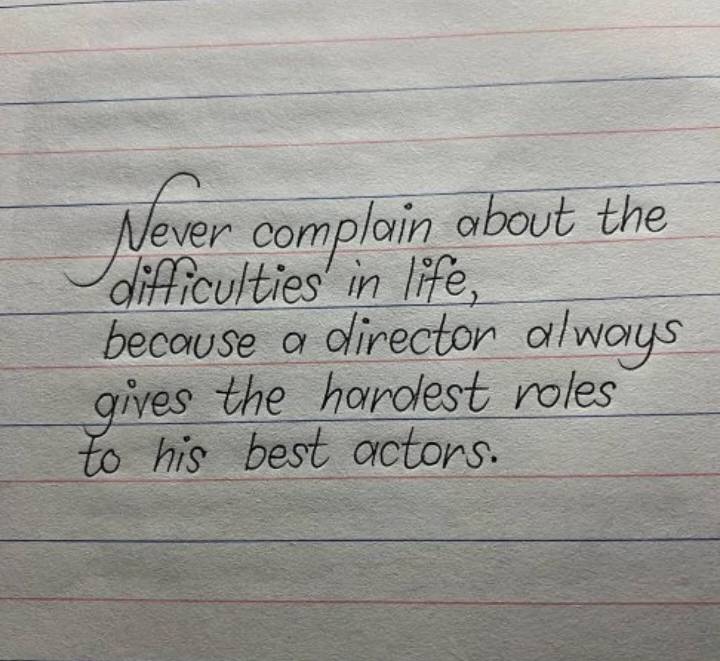 Never complain about the
difficulties in life,
because a director always
gives the hardest roles
to his best actors.